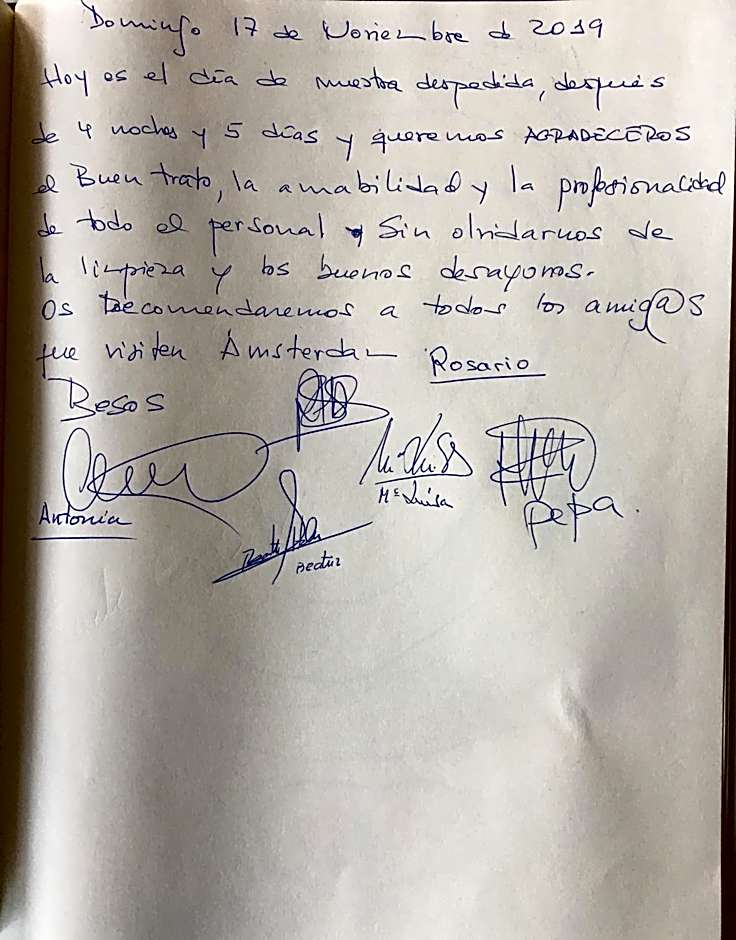 Domingo 17 de Noviembre de 2019
Hoy es el día de nuestra despedida, después
de 4 noches y 5 días y queremos AGRADECEROS
el Buen trato, la amabilidad y la profesionalidad
de todo el personal y Sin olvidarnos de
la limpieza y los buenos desayunos.
Os Recomendaremos a todos los amig@s
que visiten Amsterdam
Rosario
Besos
Antonia
Mª Luisa
pepa.
Beatriz